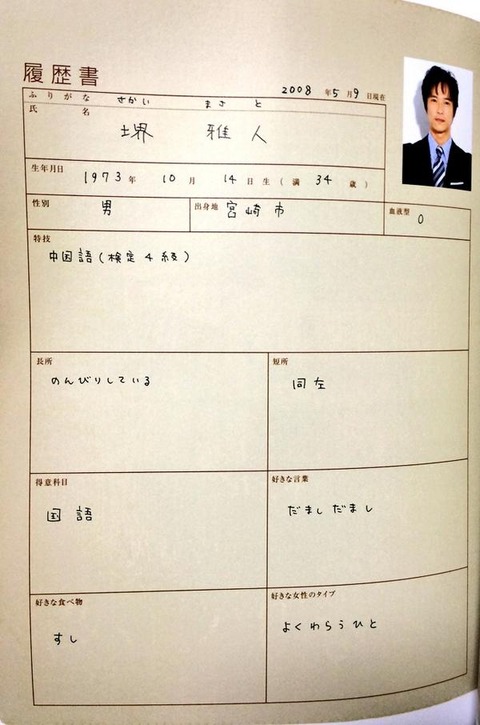 履歴書
2008 年 5月 9 日現在
ふりがな さかい まさと
氏名 堺 雅人
生年月日 1973 年 10 月 14 日生 (満 34 歳)
性別 男 出身地 宮崎市 血液型 O
特技
中国語(検定4級)
長所 短所
のんびりしている 同左
得意科目 好きな言葉
国語 だましだまし
好きな食べ物 好きな女性のタイプ
すし よくわらうひと